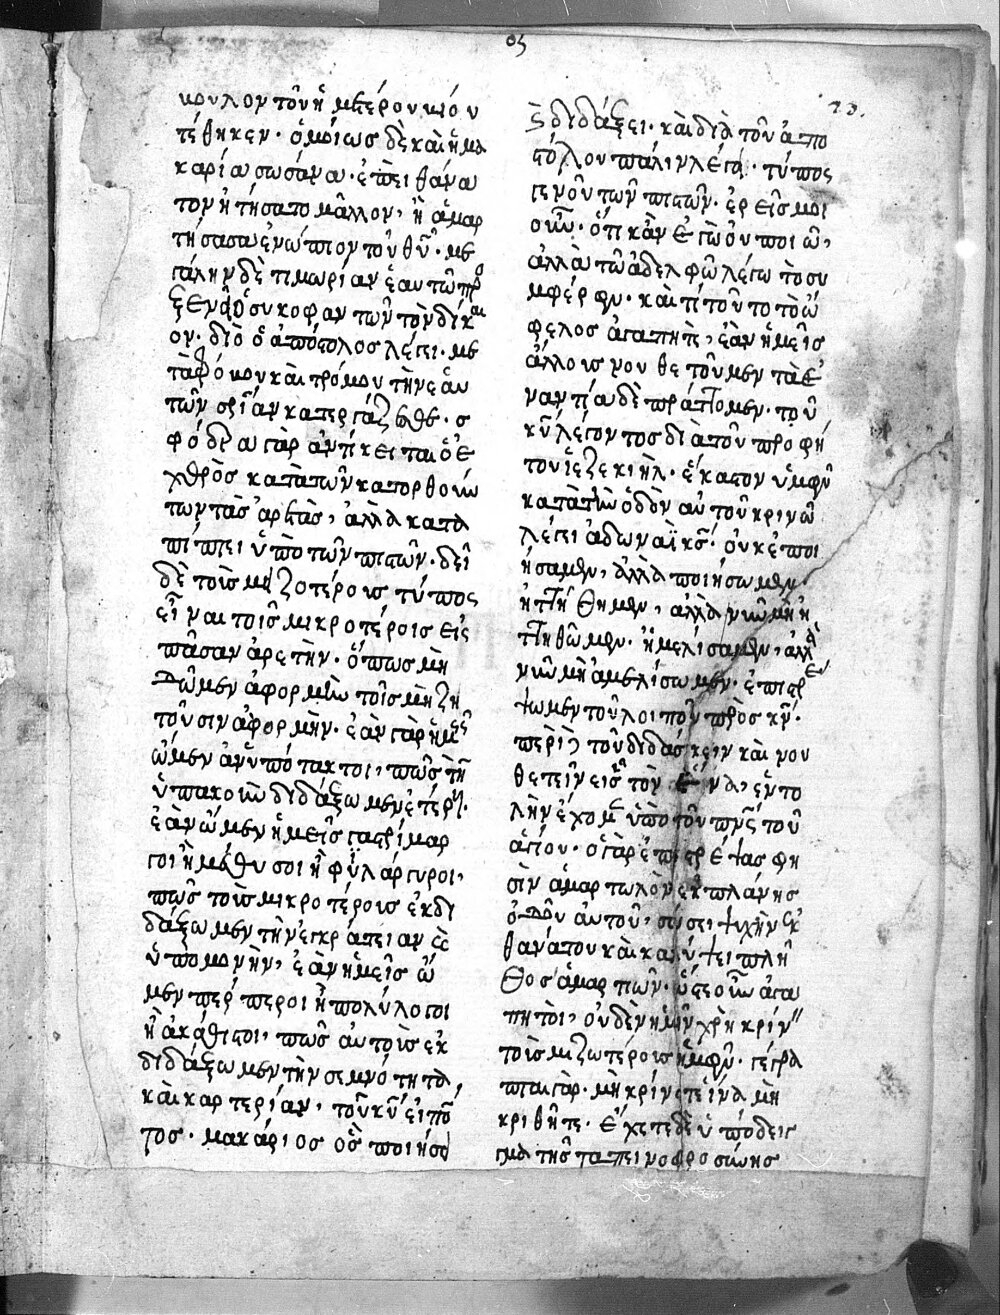 οϛ
23.
κουλον τοῦ ἡμετέρου κιόν
τέθηκεν· ὁμοίως δὲ καὶ ἡ μα
καρία σωσάνα· ἐπεὶ θάνα
τον ἠτήσατο μᾶλλον, ἢ ἁμαρ
τήσασα ἐνώπιον τοῦ θυ· με
γάλην δὲ τιμωρίαν ἑαυτῶ προ
ξενεῖ ὁ συκοφαντῶν τὸν δίκαι
ον· διὸ ὁ ἀπόστολος λέγει· με
τὰ φόβου καὶ τρόμου τὴν ἑαυ
τῶν σρίαν κατεργάζεσθε· σ
φόδρα γὰρ ἀντίκειται ὁ ἐ
χθρὸς κατὰ τῶν κατορθούν
των τὰς ἀρετάς, ἀλλὰ κατα
πίπτει ὑπὸ τῶν πιστῶν· δεῖ
δὲ τοῖς μειζοτέροις τύπος
εἶναι τοῖς μικροτέροις εἰς
πᾶσαν ἀρετήν· ὅπως μὴ
δῶμεν ἀφορμὴν τοῖς μὴ ζη
τοῦσιν ἀφορμήν· ἐὰν γὰρ ἡμεῖς
ὦμεν ἀνυπότακτοι, πῶς τὴν
ὑπακοὴν διδάξωμεν ἑτέροις·
ἐὰν ὦμεν ἡμεῖς γαστρίμαρ
γοι ἢ μέθυσοι ἢ φιλάργυροι,
πῶς τοῖς μικροτέροις ἐκδι
δάξωμεν τὴν ἐγκράτειαν καὶ
ὑπομονήν, ἐὰν ἡμεῖς ὦ
μεν πέρπεροι ἢ πολύλογοι
ἢ ἀκάθιστοι, πῶς αὐτοῖς ἐκ
διδάξωμεν τὴν σεμνότητα,
καὶ καρτερίαν, τοῦ κυ εἰπόν
τος· μακάριος ὃς ποιήσει
διδάξει· καὶ διὰ τοῦ ἀπο
στόλου πάλιν λέγει· τύπος
γενοῦ τῶν πιστῶν· ἐρεῖς μοι
οὖν· ὅτι κἂν ἐγὼ οὐ ποιῶ,
ἀλλὰ τῶ ἀδελφῶ λέγω τὸ συ
μφέρον· καὶ τί τοῦτο τὸ ὄ
φελος ἀγαπητέ, ἐὰν ἡμεῖς
ἄλλοις νουθετοῦμεν τὰ ἐ
ναντία δὲ πράττομεν· τοῦ
κυ λέγοντος διὰ τοῦ προφή
του ἰεζεκιήλ· ἕκαστον ὑμῶν
κατὰ τὴν ὁδὸν αὐτοῦ κρινῶ
λέγει ἀδωναῒ κς· οὐκ ἐποι
ήσαμεν, ἀλλὰ ποιήσωμεν·
ἡττήθημεν, ἀλλὰ νῦν μὴ ἡ
ττηθῶμεν· ἠμελήσαμεν, ἀλλὰ
νῦν μὴ ἀμελήσωμεν· ἐπιστρέ
ψωμεν τοῦ λοιποῦ πρὸς κν·
περὶ τοῦ διδάσκειν καὶ νου
θετεῖν εἷς τὸν ἕνα, ἐντο
λὴν ἔχομεν ὑπὸ τοῦ πνς τοῦ
ἁγίου· ὁ γὰρ ἐπιστρέψας φη
σὶν ἁμαρτωλὸν ἐκ πλάνης
ὁδοῦ αὐτοῦ, σώσει ψυχὴν ἐκ
θανάτου καὶ καλύψει πλῆ
θος ἁμαρτιῶν· ὥστε οὖν ἀγα
πητοί, οὐδὲν ἡμῖν χρὴ κρίνειν
τοῖς μειζωτέροις ἡμῶν· γέγρα
πται γάρ· μὴ κρίνετε ἵνα μὴ
κριθῆτε· ἔχετε δὲ ὑπόδειγ
γμα τῆς ταπεινοφροσύνης